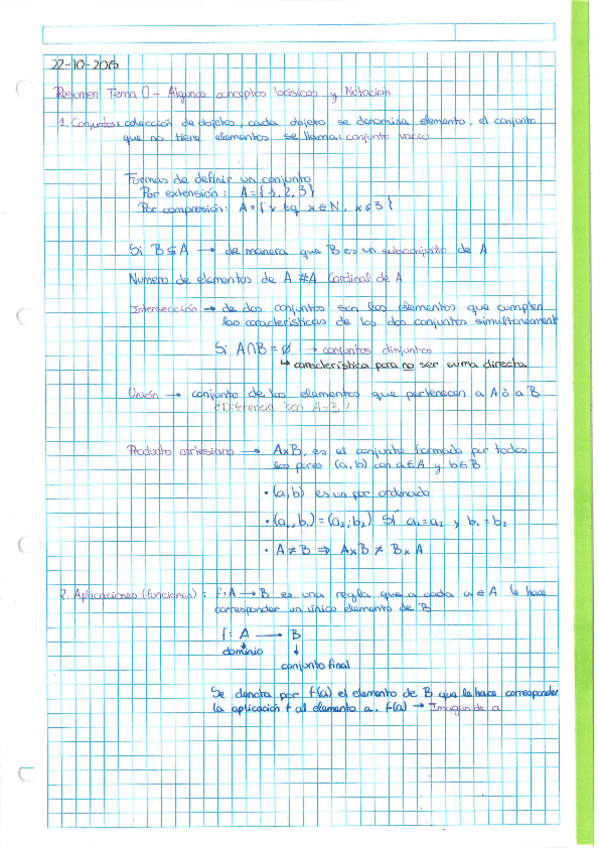 22-10-2015
Resumen Tema 0 - Algunos conceptos básicos y Notación
1. Conjuntos: colección de objeto, cada objeto se denomina elemento, el conjunto
que no tiene elementos se llama: conjunto vacío
Formas de definir un conjunto
Por extensión: A={1,2,3}
Por compresión: A={x tq x∈N, x≤3}
Si B⊆A → de manera que B es un subconjunto de A
Numero de elementos de A #A Cardinal de A
Intersección → de dos conjuntos son los elementos que cumplen
las características de los dos conjuntos simultaneament
Si A∩B=∅ → conjuntos disjuntos
↳ característica para no ser suma directa
Unión → conjunto de los elementos que pertenecen a A ó a B
¿Diferencia con A+B?
Producto cartesiano → AxB, es el conjunto formado por todos
los pares (a,b) con a∈A y b∈B
• (a,b) es un par ordenado
• (a₁,b₁)=(a₂,b₂) SÍ a₁=a₂ y b₁=b₂
• A≠B ⇒ AxB ≠ BxA
2. Aplicaciones (funciones): f:A→B es una regla que a cada a∈A le hace
corresponder un único elemento de B
f: A → B
↓ ↓
dominio
conjunto final
Se denota por f(a) el elemento de B que le hace corresponder
la aplicación f al elemento a. f(a) → Imagen de a